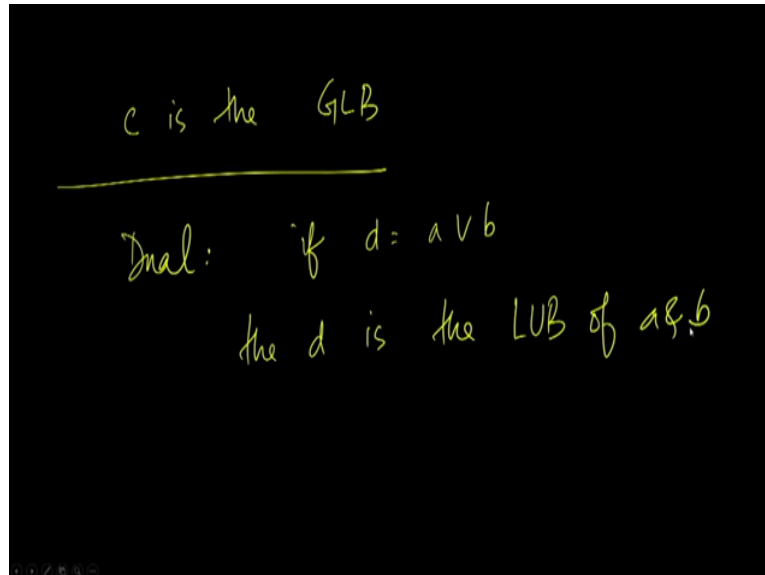 c is the GLB
Dual: if d = a ∨ b
the d is the LUB of a & b